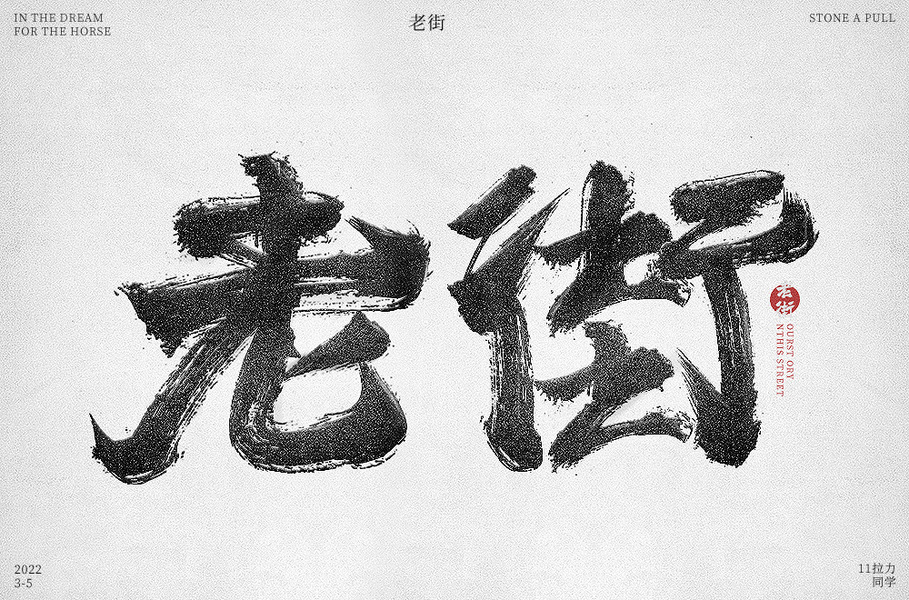 IN THE DREAM
FOR THE HORSE
老街
STONE A PULL
老街
老街
OURST ORY
NTHIS STREET
2022
3-5
11拉力
同学